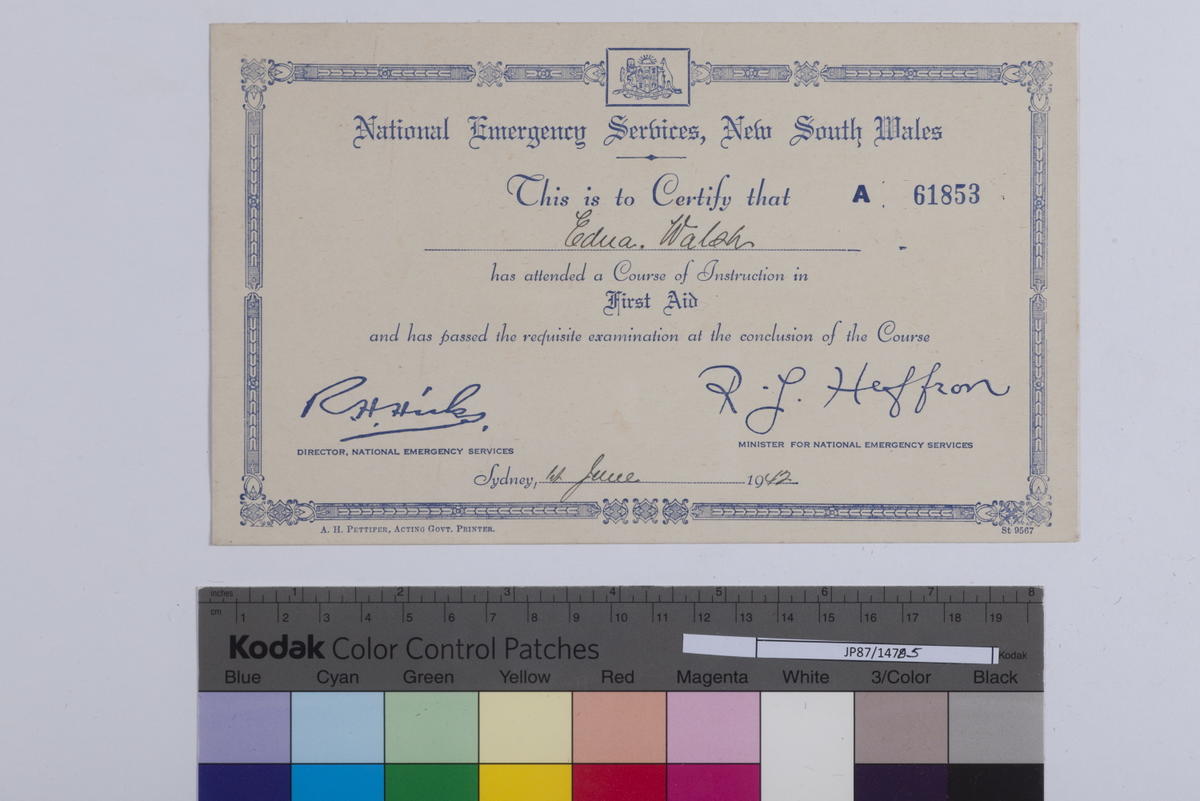 National Emergency Services, New South Wales
This is to Certify that A 61853
Edna. Walsh
has attended a Course of Instruction in
First Aid
and has passed the requisite examination at the conclusion of the Course
R.H. Hicks. R. J. Heffron
DIRECTOR, NATIONAL EMERGENCY SERVICES MINISTER FOR NATIONAL EMERGENCY SERVICES
Sydney, 1st June 1942
A. H. PETTIFER, ACTING GOVT. PRINTER. St 9567
inches 1 2 3 4 5 6 7 8
cm 1 2 3 4 5 6 7 8 9 10 11 12 13 14 15 16 17 18 19
Kodak Color Control Patches JP87/1475 Kodak
Blue Cyan Green Yellow Red Magenta White 3/Color Black